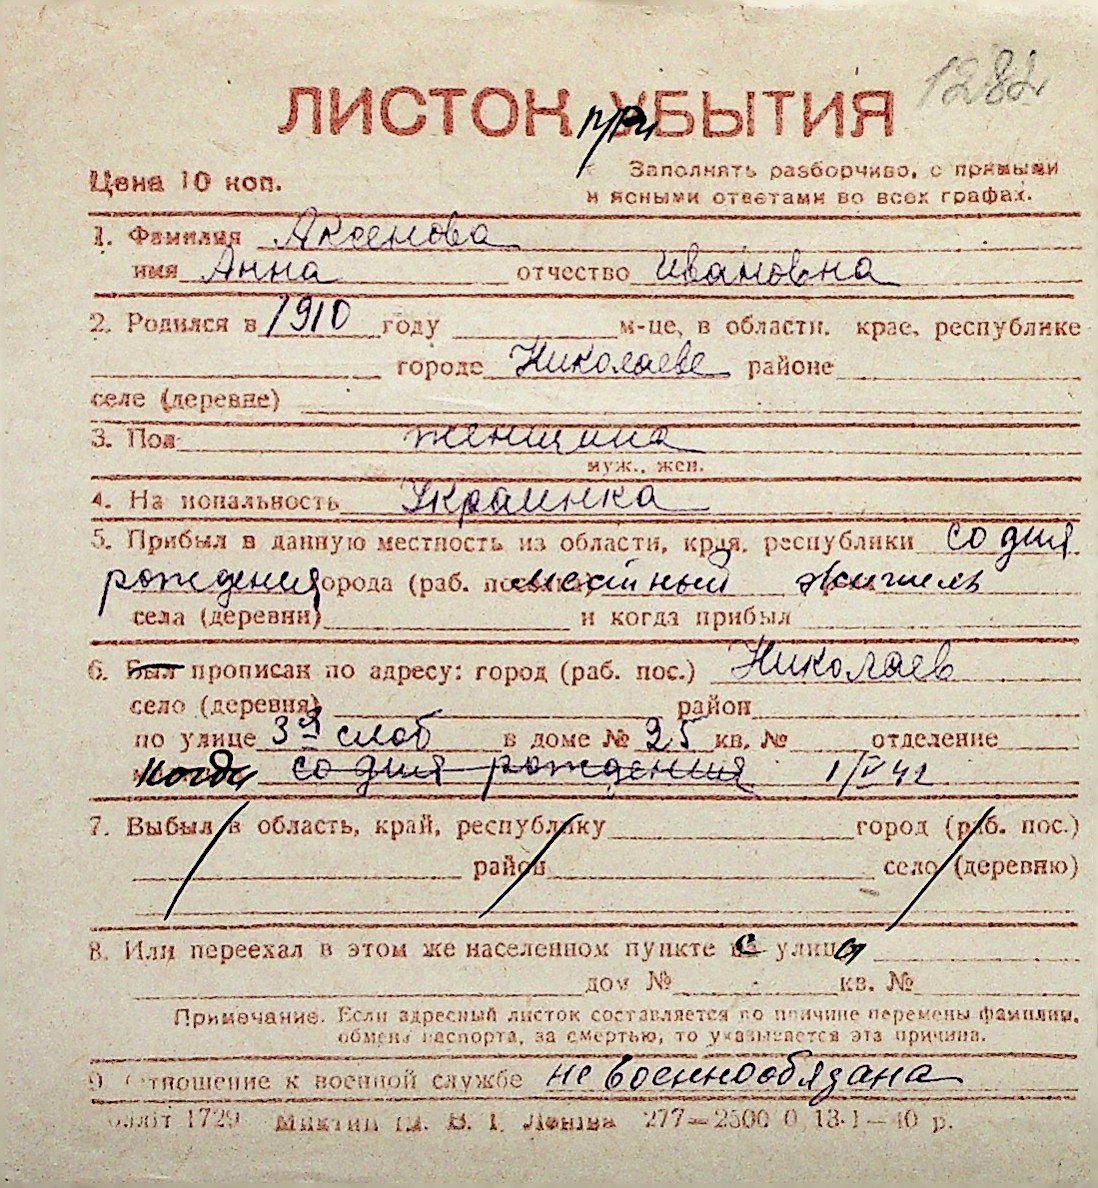 1282
ЛИСТОК при УБЫТИЯ
Цена 10 коп.
Заполнять разборчиво, с прямыми
и ясными ответами во всех графах.
1. Фамилия Аксенова
имя Анна отчество Ивановна
2. Родился в 1910 году м-це, в области, крае, республике
городе Николаеве районе
селе (деревне)
3. Пол женщина
муж., жен.
4. На иональность Украинка
5. Прибыл в данную местность из области, края, республики со дня
рождения города (раб. местный житель
села (деревни) и когда прибыл
6. Был прописан по адресу: город (раб. пос.) Николаев
село (деревня) район
по улице 3я слоб в доме № 25 кв. № отделение
когда со дня рождения 1/V 42
7. Выбыл в область, край, республику город (раб. пос.)
район село (деревню)
8. Или переехал в этом же населенном пункте с улицы
дом № кв. №
Примечание. Если адресный листок составляется по причине перемены фамилии,
обмена паспорта, за смертью, то указывается эта причина.
9. Отношение к военной службе не военнообязана
1729 ім. В. І. Леніна 277—2500 0 13-1—40 р.